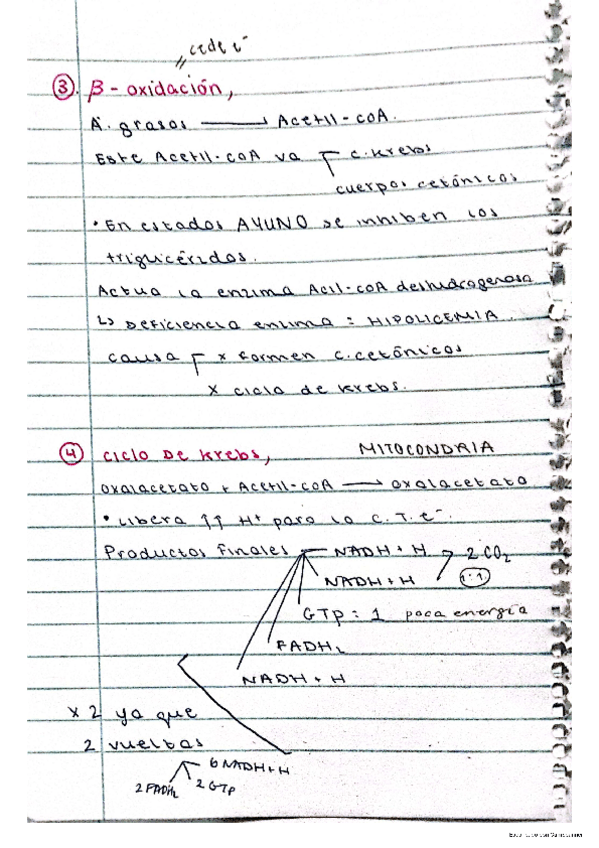 cede e⁻
③. β - oxidación,
A. grasos ⟶ Acetil-coA.
Este Acetil-coA va c. krebs
cuerpos cetónicos
• En estados AYUNO se inhiben los
triglicéridos.
Actua la enzima Acil-coA deshidrogenasa
↳ Deficiencia enzima : HIPOLICEMIA
causa x formen c. cetónicos
x ciclo de krebs.
④ ciclo De krebs, MITOCONDRIA
oxalacetato + Acetil-coA ⟶ oxalacetato
• Libera ↑↑ H⁺ para la C.T.e⁻.
Productos finales NADH + H 2 CO₂
NADH + H 1:1
GTP : 1 poca energía
FADH₂
NADH + H
x 2 ya que
2 vueltas
6 NADH+H
2 FADH₂ 2 GTP